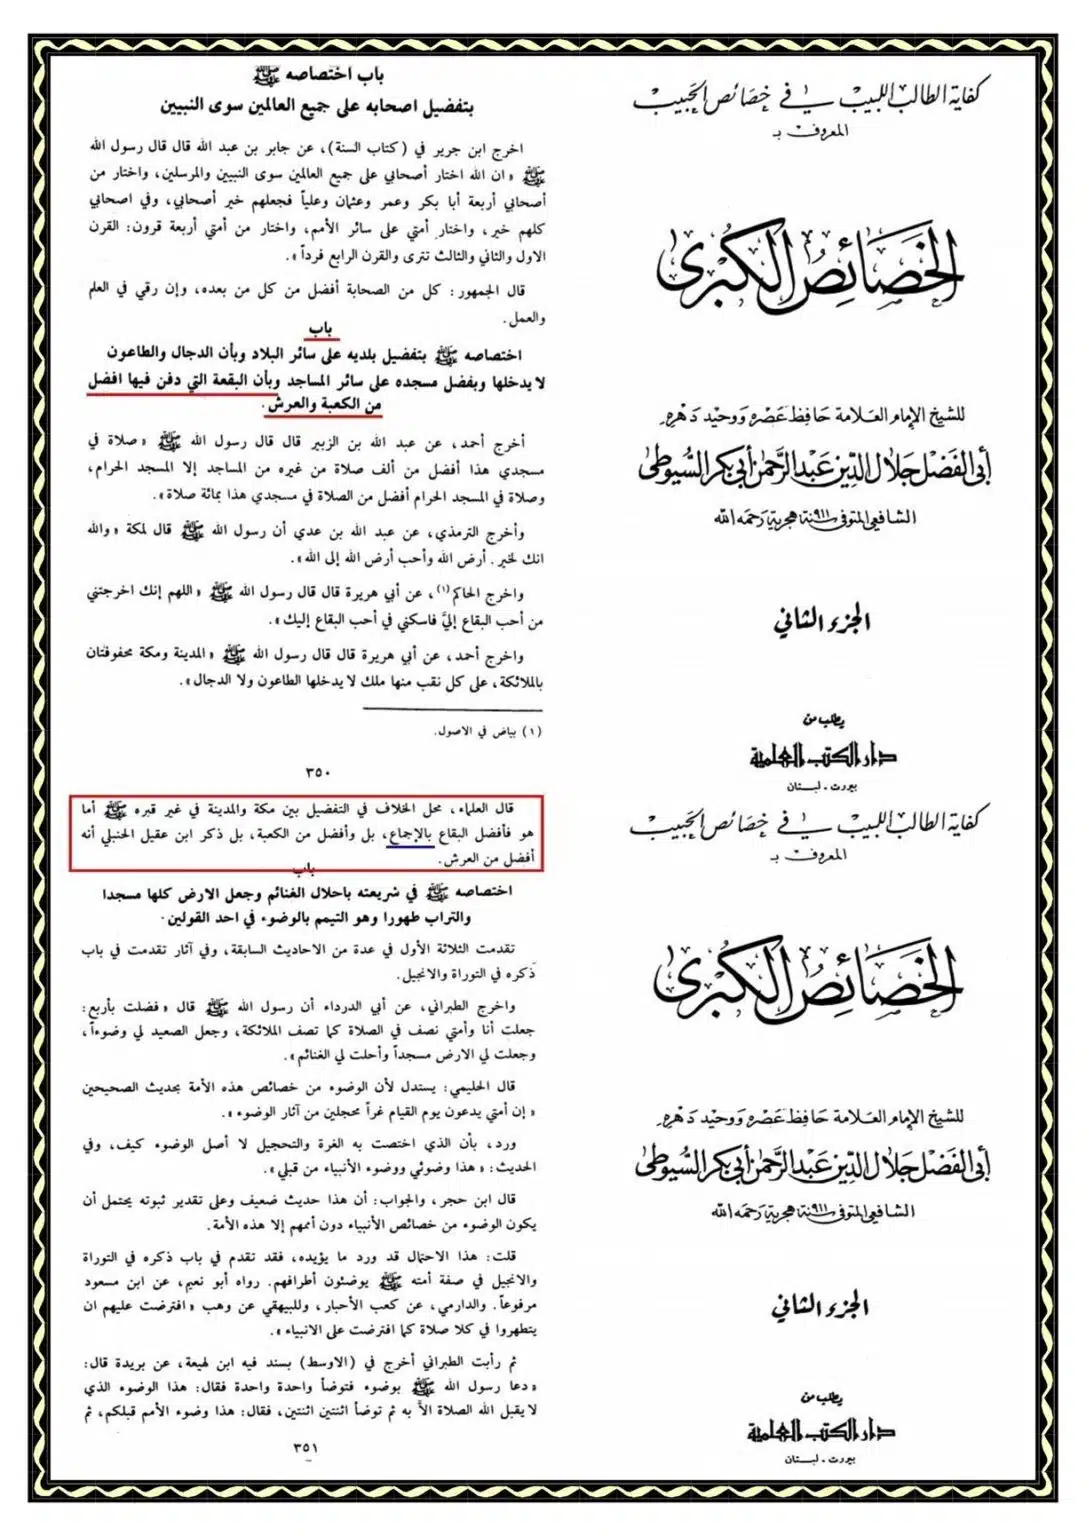 كفاية الطالب اللبيب في خصائص الحبيب
المعروف بـ
الخصائص الكبرى
للشيخ الإمام العلامة حافظ عصره ووحيد دهره
أبي الفضل جلال الدين عبد الرحمن أبي بكر السيوطي
الشافعي المتوفى سنة ٩١١ هجرية رحمه الله
الجزء الثاني
يطلب من
دار الكتب العلمية
بيروت - لبنان
باب اختصاصه ﷺ
بتفضيل اصحابه على جميع العالمين سوى النبيين
اخرج ابن جرير في (كتاب السنة)، عن جابر بن عبد الله قال قال رسول الله
ﷺ « ان الله اختار أصحابي على جميع العالمين سوى النبيين والمرسلين، واختار من
أصحابي أربعة أبا بكر وعمر وعثمان وعلياً فجعلهم خير أصحابي، وفي اصحابي
كلهم خير، واختار أمتي على سائر الأمم، واختار من أمتي أربعة قرون: القرن
الاول والثاني والثالث تترى والقرن الرابع فرداً ».
قال الجمهور: كل من الصحابة أفضل من كل من بعده، وإن رقي في العلم
والعمل.
باب
اختصاصه ﷺ بتفضيل بلديه على سائر البلاد وبأن الدجال والطاعون
لا يدخلها وبفضل مسجده على سائر المساجد وبأن البقعة التي دفن فيها افضل
من الكعبة والعرش.
أخرج أحمد، عن عبد الله بن الزبير قال قال رسول الله ﷺ « صلاة في
مسجدي هذا أفضل من ألف صلاة من غيره من المساجد إلا المسجد الحرام،
وصلاة في المسجد الحرام أفضل من الصلاة في مسجدي هذا بمائة صلاة ».
وأخرج الترمذي، عن عبد الله بن عدي أن رسول الله ﷺ قال لمكة « والله
انك لخير. أرض الله وأحب أرض الله إلى الله ».
واخرج الحاكم(١)، عن أبي هريرة قال قال رسول الله ﷺ « اللهم إنك اخرجتني
من أحب البقاع إليَّ فاسكني في أحب البقاع إليك ».
واخرج أحمد، عن أبي هريرة قال قال رسول الله ﷺ « المدينة ومكة محفوفتان
بالملائكة، على كل نقب منها ملك لا يدخلها الطاعون ولا الدجال ».
(١) بياض في الاصول.
٣٥٠
كفاية الطالب اللبيب في خصائص الحبيب
المعروف بـ
الخصائص الكبرى
للشيخ الإمام العلامة حافظ عصره ووحيد دهره
أبي الفضل جلال الدين عبد الرحمن أبي بكر السيوطي
الشافعي المتوفى سنة ٩١١ هجرية رحمه الله
الجزء الثاني
يطلب من
دار الكتب العلمية
بيروت - لبنان
قال العلماء، محل الخلاف في التفضيل بين مكة والمدينة في غير قبره ﷺ أما
هو فأفضل البقاع بالإجماع، بل وأفضل من الكعبة، بل ذكر ابن عقيل الحنبلي أنه
أفضل من العرش.
باب
اختصاصه ﷺ في شريعته باحلال الغنائم وجعل الارض كلها مسجدا
والتراب طهورا وهو التيمم بالوضوء في احد القولين.
تقدمت الثلاثة الأول في عدة من الاحاديث السابقة، وفي آثار تقدمت في باب
ذكره في التوراة والانجيل.
واخرج الطبراني، عن أبي الدرداء أن رسول الله ﷺ قال « فضلت بأربع:
جعلت أنا وأمتي نصف في الصلاة كما تصف الملائكة، وجعل الصعيد لي وضوءاً،
وجعلت لي الارض مسجداً وأحلت لي الغنائم ».
قال الحليمي: يستدل لأن الوضوء من خصائص هذه الأمة بحديث الصحيحين
« إن أمتي يدعون يوم القيام غراً محجلين من آثار الوضوء ».
ورد، بأن الذي اختصت به الغرة والتحجيل لا أصل الوضوء كيف، وفي
الحديث: « هذا وضوئي ووضوء الأنبياء من قبلي ».
قال ابن حجر، والجواب: أن هذا حديث ضعيف وعلى تقدير ثبوته يحتمل أن
يكون الوضوء من خصائص الأنبياء دون أممهم إلا هذه الأمة.
قلت: هذا الاحتمال قد ورد ما يؤيده، فقد تقدم في باب ذكره في التوراة
والانجيل في صفة أمته ﷺ يوضئون أطرافهم. رواه أبو نعيم، عن ابن مسعود
مرفوعاً. والدارمي، عن كعب الأحبار، وللبيهقي عن وهب « افترضت عليهم ان
يتطهروا في كلا صلاة كما افترضت على الانبياء ».
ثم رأيت الطبراني أخرج في (الاوسط) بسند فيه ابن لهيعة، عن بريدة قال:
« دعا رسول الله ﷺ بوضوء فتوضأ واحدة واحدة فقال: هذا الوضوء الذي
لا يقبل الله الصلاة الاَّ به ثم توضأ اثنتين اثنتين، فقال: هذا وضوء الأمم قبلكم، ثم
٣٥١